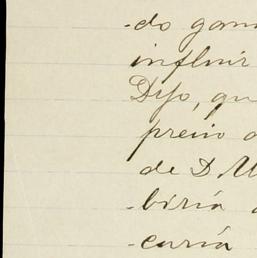 -do gana
influir
Dijo, qu
precio
de D. M
-biria
-curia